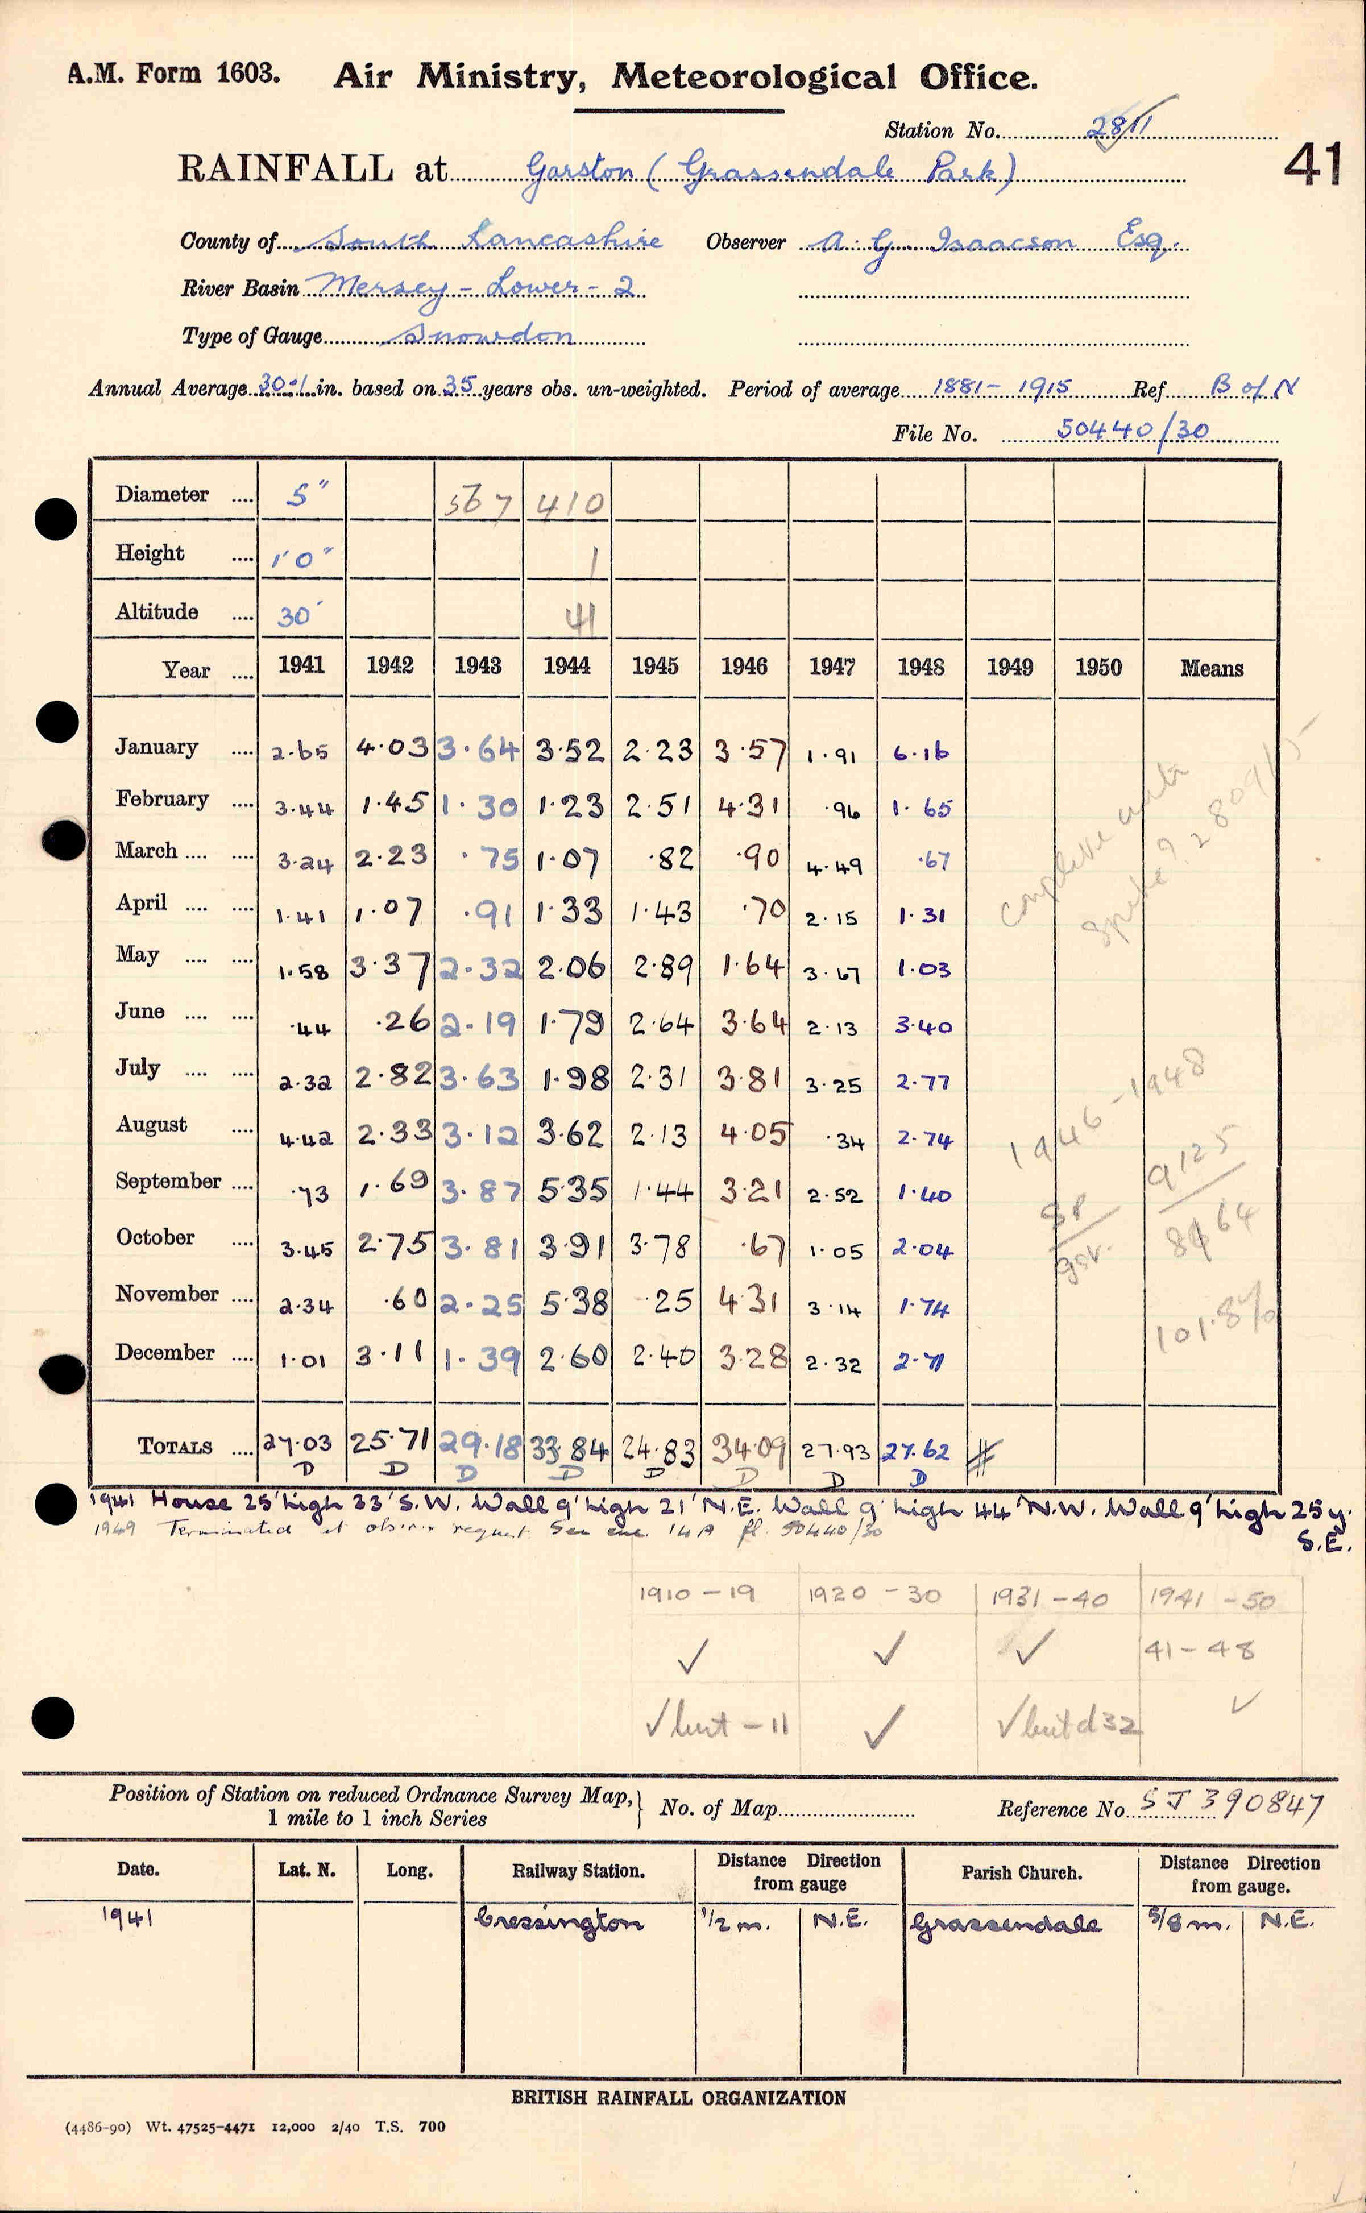 A.M. Form 1603. Air Ministry, Meteorological Office.
Station No. 2811
41
RAINFALL at Garston (Grassendale Park)
County of South Lancashire Observer A. G. Isaacson Esq.
River Basin Mersey - Lower - 2
Type of Gauge Snowdon
Annual Average 30.1 in. based on 35 years obs. un-weighted. Period of average 1881 - 1915 Ref B of N
File No. 50440/30
Diameter .... 5" 567 410
Height .... 1'0" 1
Altitude .... 30' 41
Year .... 1941 1942 1943 1944 1945 1946 1947 1948 1949 1950 Means
January .... 2.65 4.03 3.64 3.52 2.23 3.57 1.91 6.16
February .... 3.44 1.45 1.30 1.23 2.51 4.31 .96 1.65
March .... .... 3.24 2.23 .75 1.07 .82 .90 4.49 .67
April .... .... 1.41 1.07 .91 1.33 1.43 .70 2.15 1.31
May .... .... 1.58 3.37 2.32 2.06 2.89 1.64 3.67 1.03
June .... .... .44 .26 2.19 1.79 2.64 3.64 2.13 3.40
July .... .... 2.32 2.82 3.63 1.98 2.31 3.81 3.25 2.77
August .... 4.42 2.33 3.12 3.62 2.13 4.05 .34 2.74
September .... .73 1.69 3.87 5.35 1.44 3.21 2.52 1.40
October .... 3.45 2.75 3.81 3.91 3.78 .67 1.05 2.04
November .... 2.34 .60 2.25 5.38 .25 4.31 3.14 1.74
December .... 1.01 3.11 1.39 2.60 2.40 3.28 2.32 2.71
TOTALS .... 27.03 25.71 29.18 33.84 24.83 34.09 27.93 27.62
D D D D D D D D
complete with
Speke ? 2809/15
1946 - 1948
9125
8464
101.8%
1941 House 25' high 33' S.W. Wall 9' high 21' N.E. Wall 9' high 44' N.W. Wall 9' high 25y.
S.E.
1949 Terminated at obs request. See enc. 14A fl. 50440/30
1910 - 19 1920 - 30 1931 - 40 1941 - 50
✓ ✓ ✓ 41 - 48
✓ but - 11 ✓ ✓ but d 32 ✓
Position of Station on reduced Ordnance Survey Map, 1 mile to 1 inch Series } No. of Map Reference No. SJ 390847
Date. Lat. N. Long. Railway Station. Distance from gauge Direction Parish Church. Distance from gauge. Direction
1941 Cressington 1/2 m. N.E. Grassendale 5/8 m. N.E.
BRITISH RAINFALL ORGANIZATION
(4486-90) Wt. 47525-4471 12,000 2/40 T.S. 700